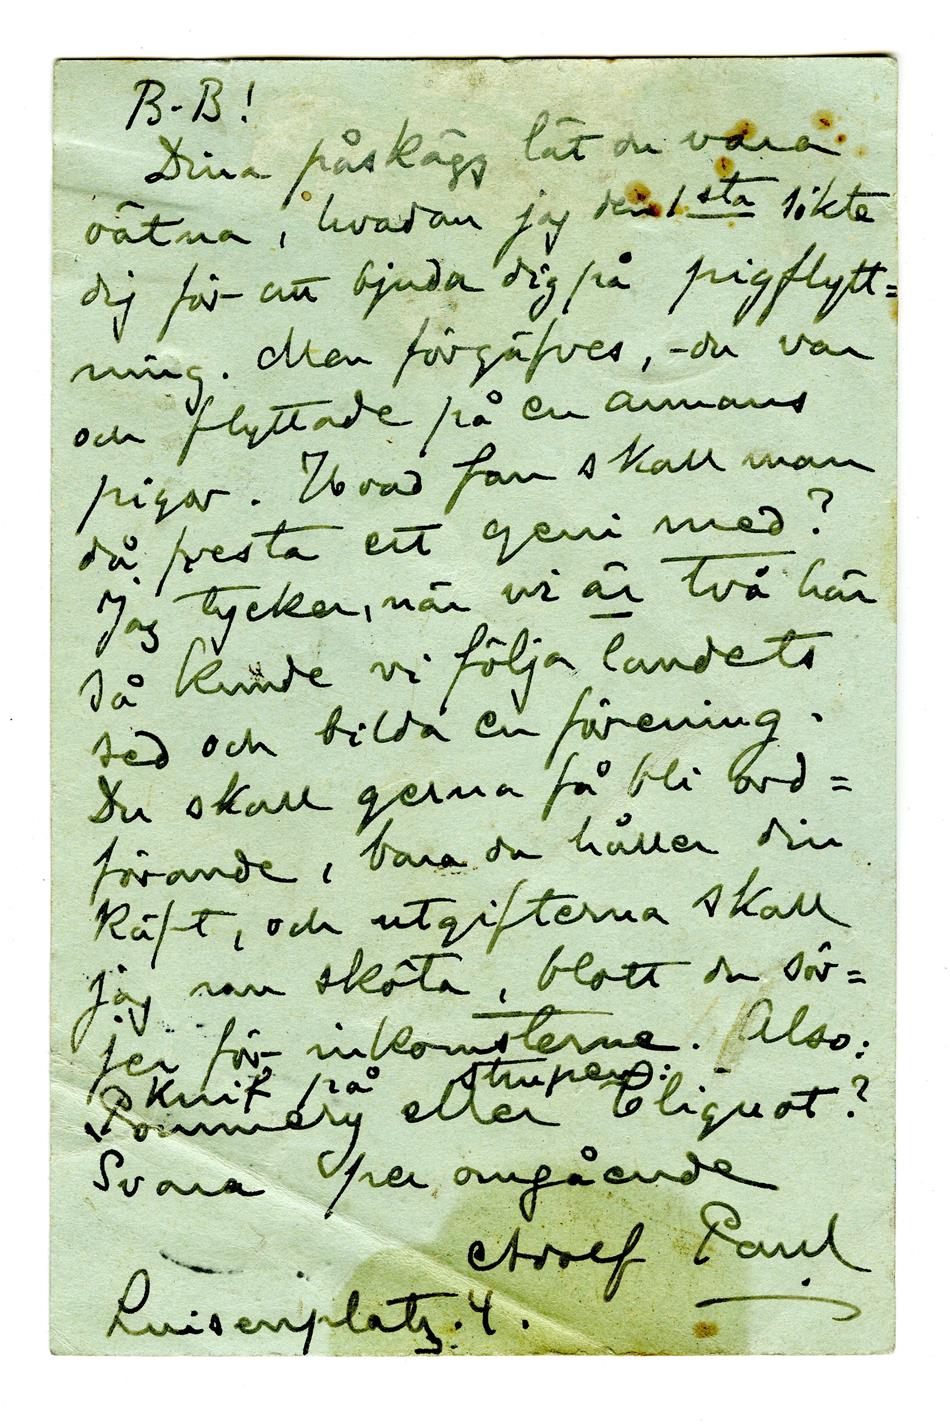 B-B!
Dina påskägg lät du vara
oätna, hvadan jag den 1sta sökte
dig för att bjuda dig på pigflytt=
ning. Men förgäfves, - du var
och flyttade på en annans
pigor. Hvad fan skall man
då fresta ett geni med?
Jag tycker, när vi är två här
så kunde vi följa landets
sed och bilda en förening.
Du skall gerna få bli ord=
förande, bara du håller din
käft, och utgifterna skall
jag nan sköta, blott du sör=
jer för inkomsterne. Also:
knif på strupen:
Pommery eller Cliquot?
Svara per omgående
Adolf Paul
Luisenplatz. 4.